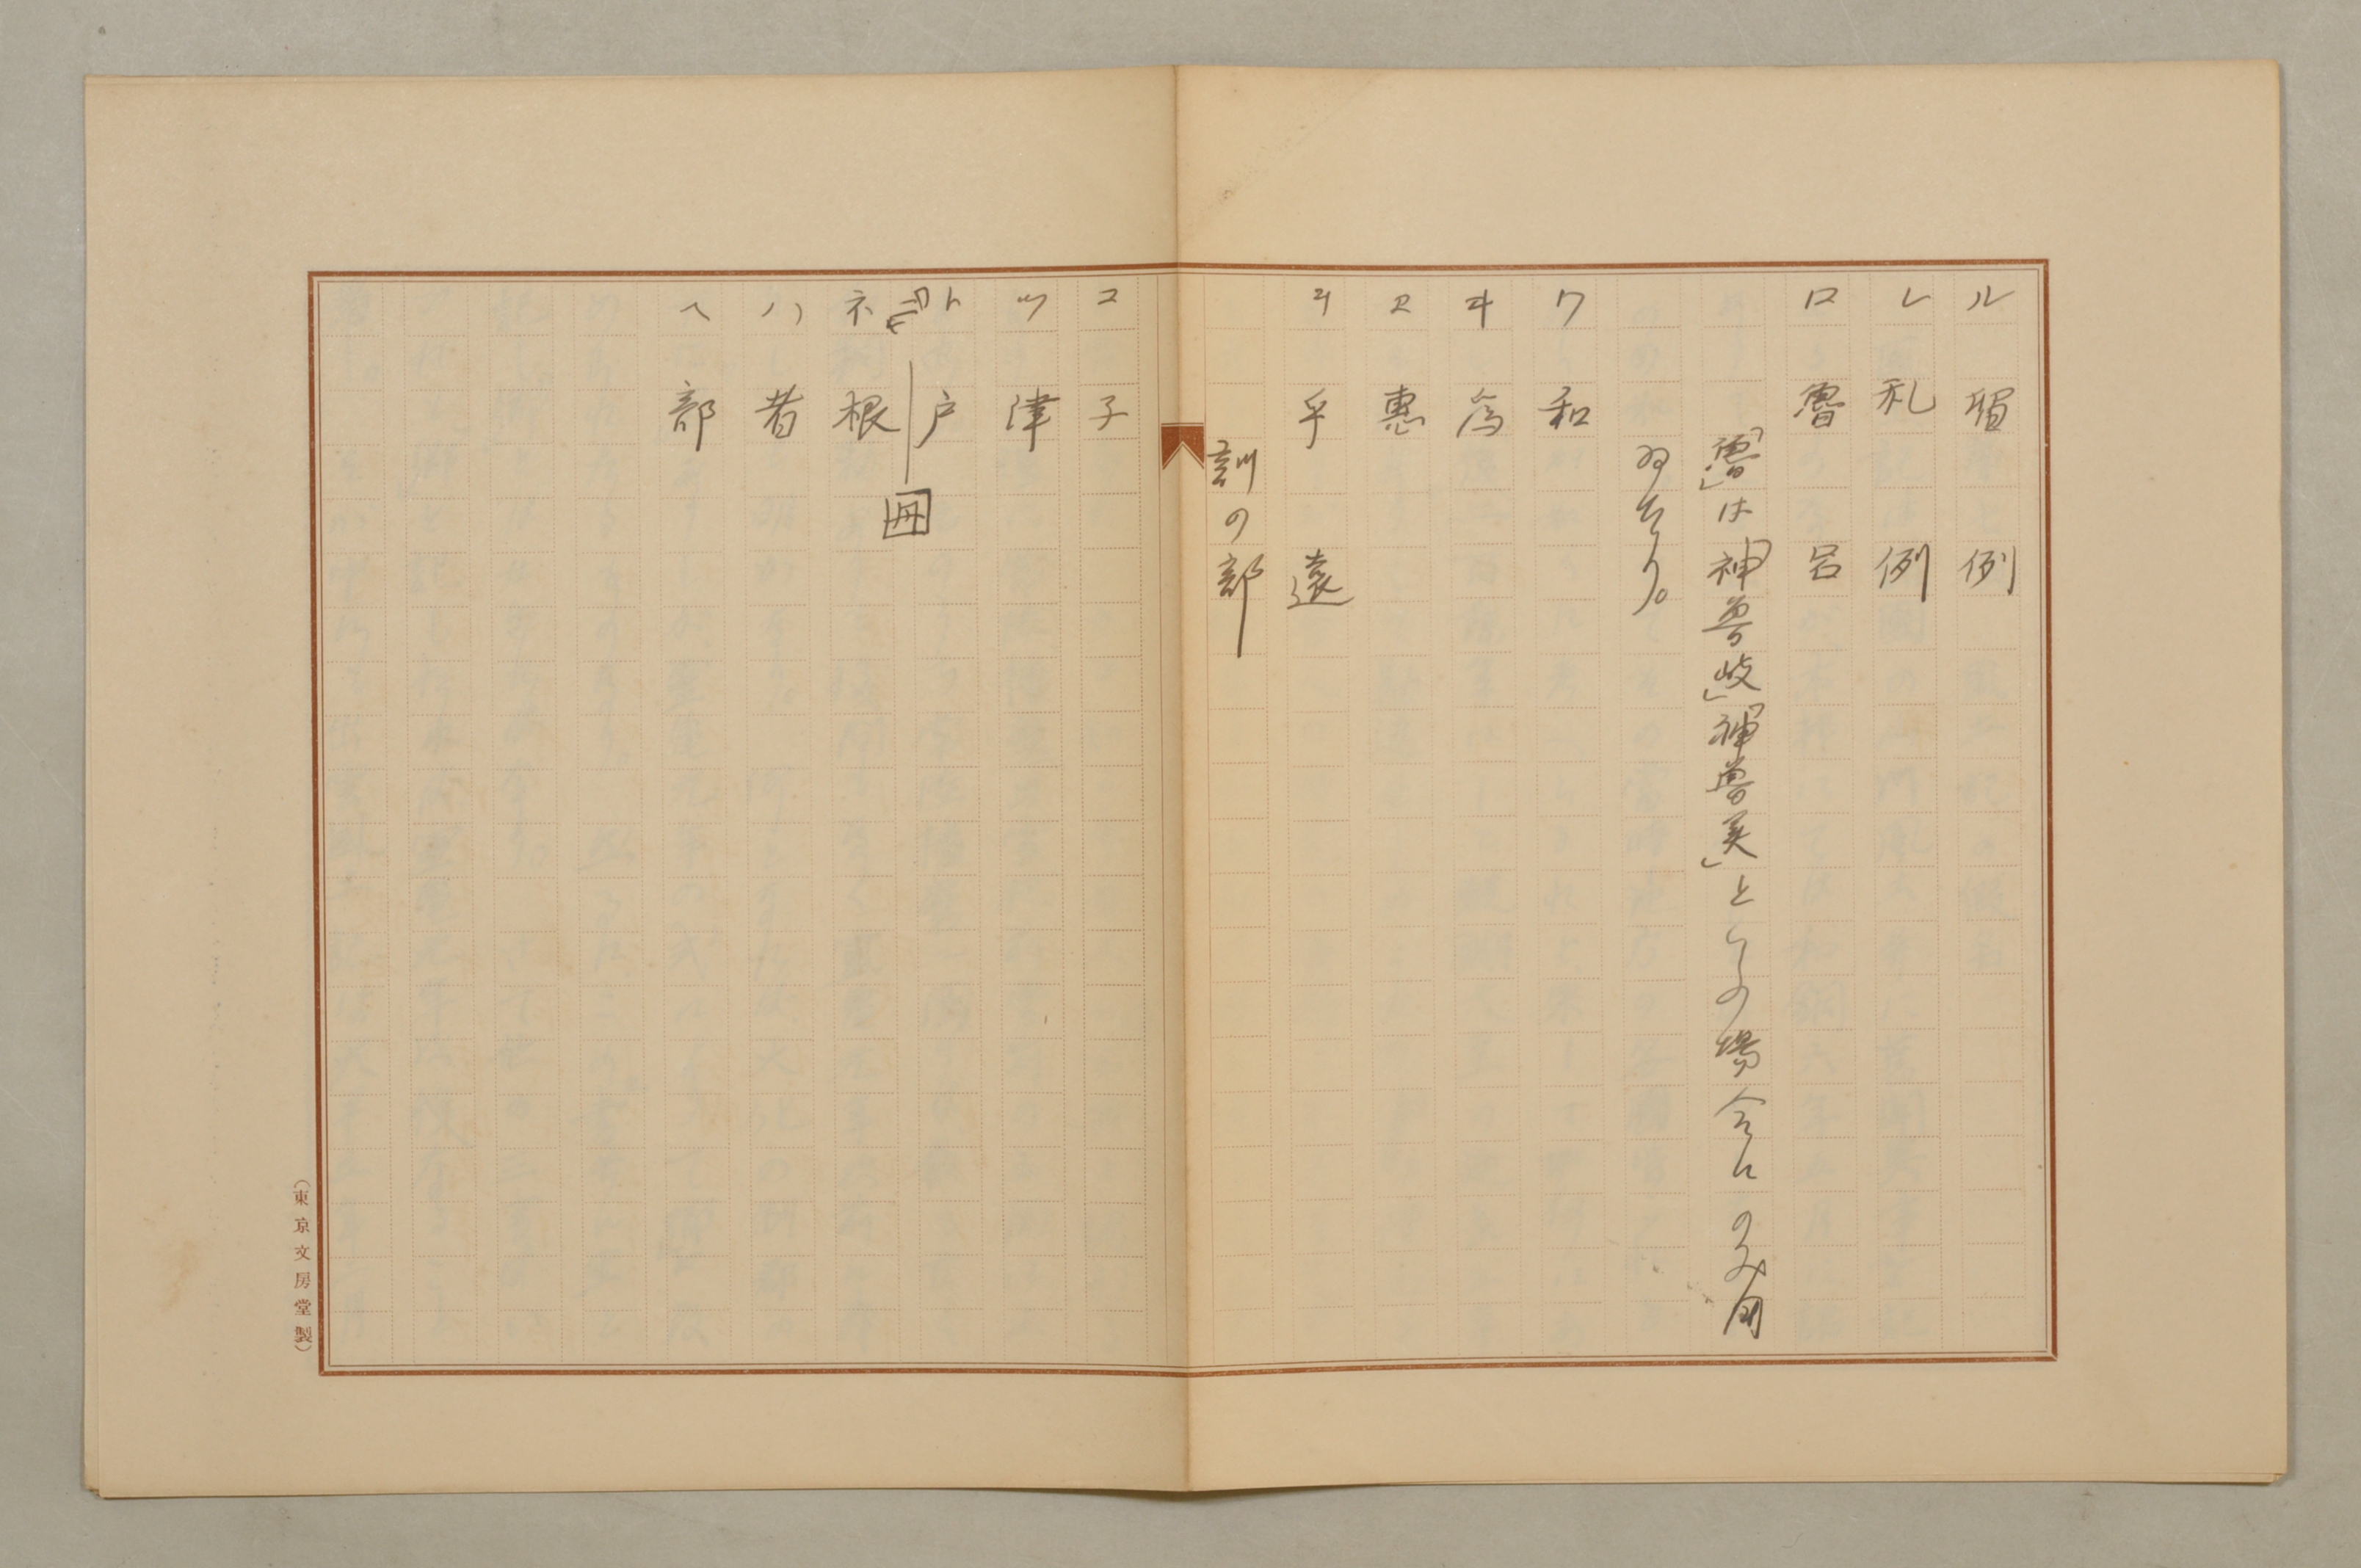 ル　留　例
レ　礼　例
ロ　魯　呂
「魯」は「神魯岐」「神魯美」としての場合にのみ用
ゐたり。
ワ　和
ヰ　為
ヱ　惠
ヲ　乎　遠
訓の部
コ　子
ツ　津
ト　戸
ネ　根
ハ　者
ヘ　部
（東京文房堂製）